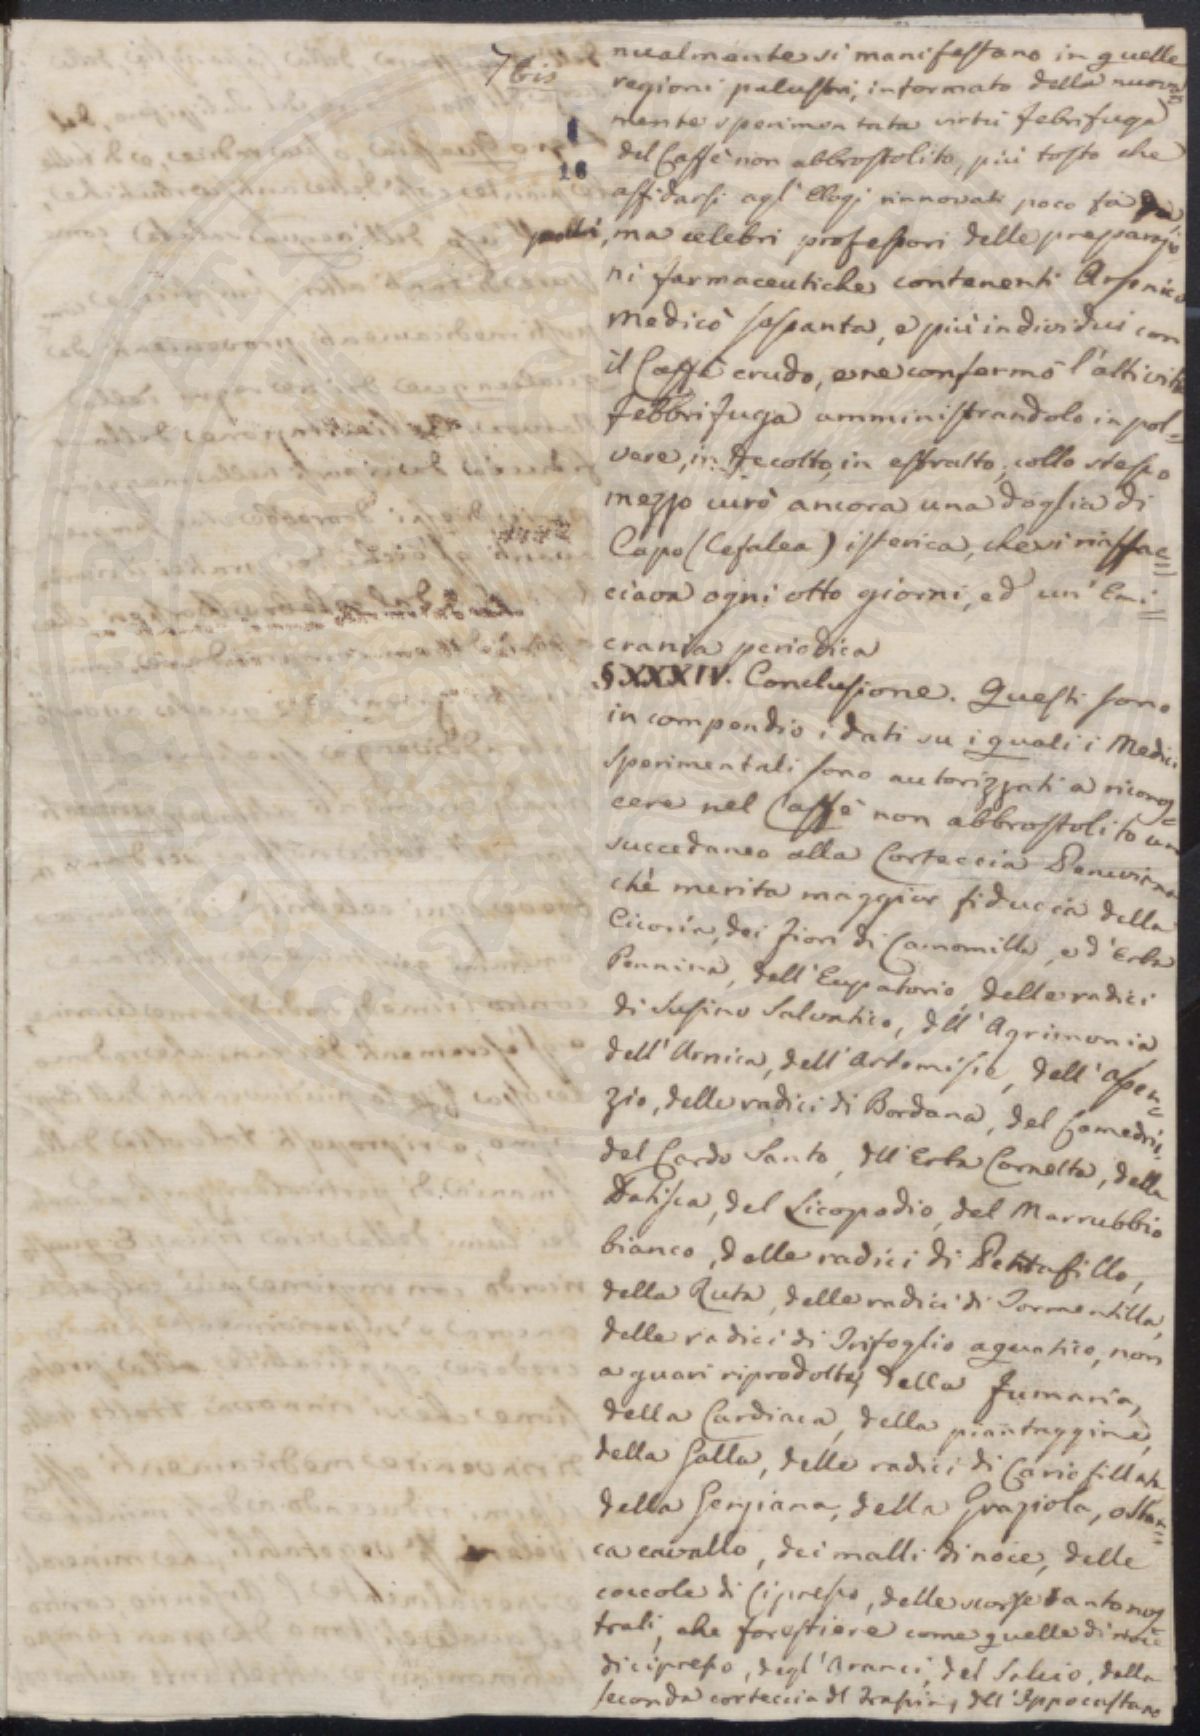 7 bis
1
18
nualmente si manifestano in quelle
regioni palustri, informato della nuova=
mente sperimentata virtù febrifuga
del Caffè non abbrostolito, più tosto che
affidarsi agl' Elogi rinnovati poco fà da
molti, ma celebri professori delle preparazio
ni farmaceutiche contenenti Arsenico
medicò sessanta, e più individui con
il Caffè crudo, e ne confermò l'attività
febbrifuga amministrandolo in pol=
vere, in decotto, in estratto; collo stesso
mezzo curò ancora una doglia di
Capo (Cefalea) isterica, che si riaffac=
ciava ogni otto giorni, ed un' Emi=
crania periodica
§ XXXIV. Conclusione. Questi sono
in compendio i dati su i quali i Medici
sperimentali sono autorizzati a riconos=
cere nel Caffè non abbrostolito un
succedaneo alla Corteccia Peruviana
chè merita maggior fiducia della
Cicoria, dei fiori di Camomilla, e d'Erba
Pennina, dell'Eupatorio, delle radici
di Susino Salvatico, dell' Agrimonia
dell'Arnica, dell'Artemisia, dell' Assen=
zio, delle radici di Bardana, del Camedrio,
del Cardo Santo, dell'Erba Cornetta, della
Datisca, del Licopodio, del Marrubbio
bianco, delle radici di Pentafillo,
della Ruta, delle radici di Tormentilla,
delle radici di Trifoglio aquatico, non
a guari riprodotte, della fumaria,
della Cardiaca, della piantaggine,
della Galla, delle radici di Cariofillata
della Genziana, della Graziola, o Stan=
ca cavallo, dei malli di noce, delle
coccole di Cipresso, delle scorze tanto nos
trali, che forestiere come quelle di noce
di cipresso, degl'Aranci, del Salcio, della
seconda corteccia di frassino, dell'Ippocastano